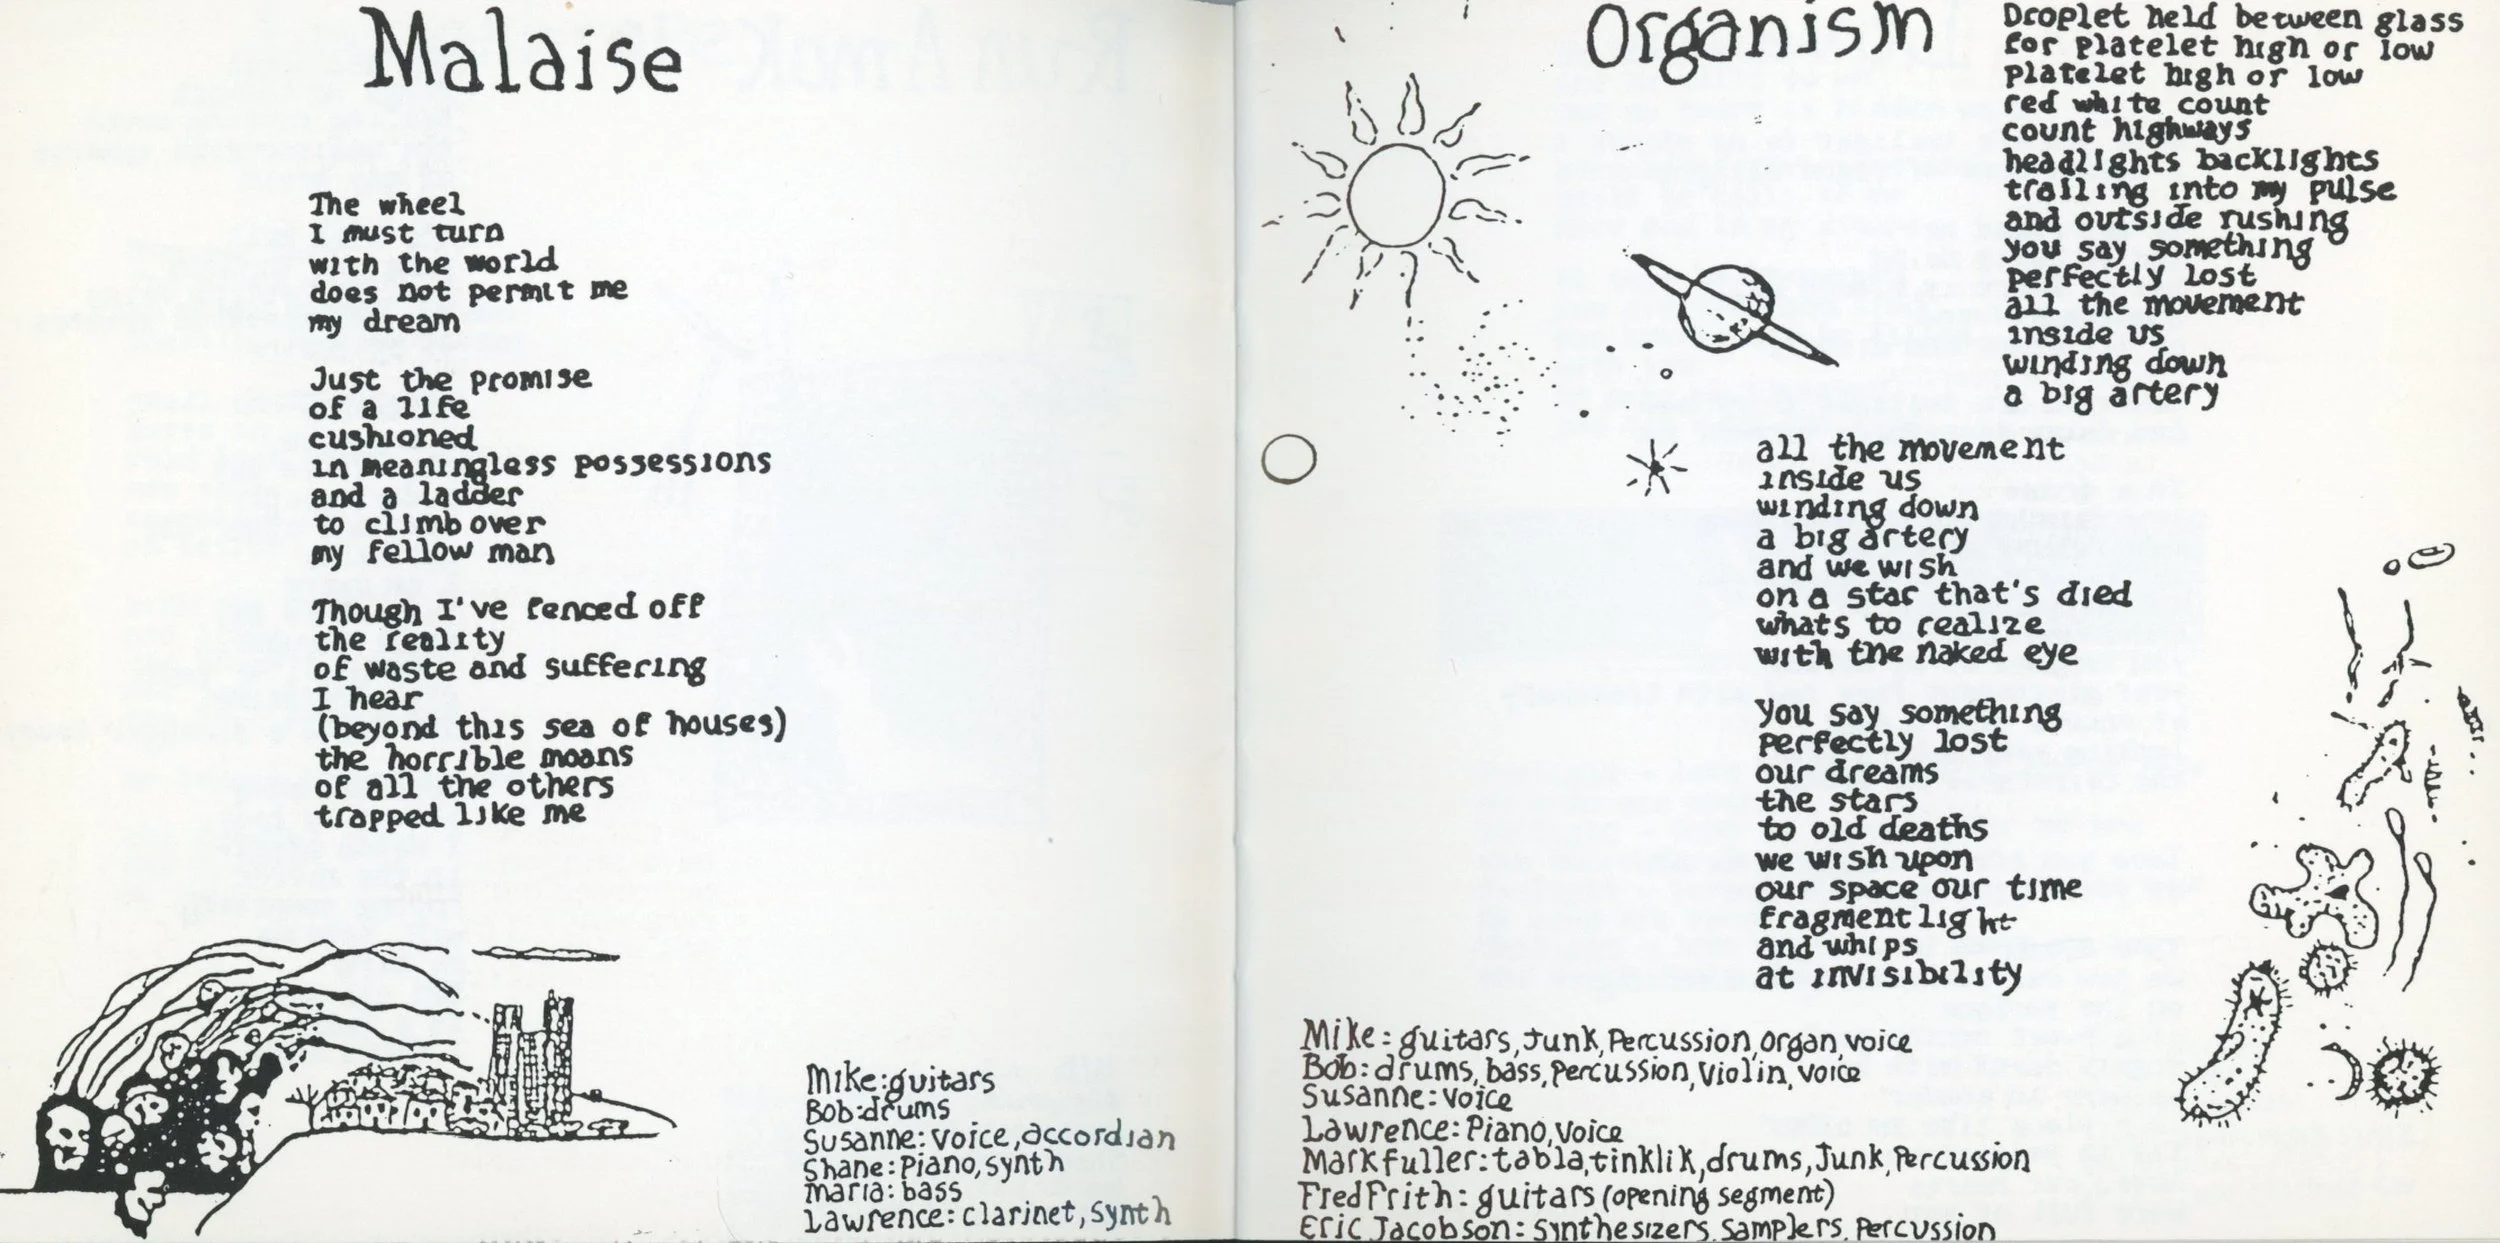 Malaise
The wheel
I must turn
with the world
does not permit me
my dream
Just the promise
of a life
cushioned
in meaningless possessions
and a ladder
to climb over
my fellow man
Though I've fenced off
the reality
of waste and suffering
I hear
(beyond this sea of houses)
the horrible moans
of all the others
trapped like me
Mike: guitars
Bob: drums
Susanne: voice, accordian
Shane: Piano, synth
Maria: bass
Lawrence: clarinet, synth
Organism
Droplet held between glass
for platelet high or low
platelet high or low
red white count
count highways
headlights backlights
trailing into my pulse
and outside rushing
you say something
perfectly lost
all the movement
inside us
winding down
a big artery
all the movement
inside us
winding down
a big artery
and we wish
on a star that's died
whats to realize
with the naked eye
You say something
perfectly lost
our dreams
the stars
to old deaths
we wish upon
our space our time
fragment light
and whips
at invisibility
Mike: guitars, Junk, Percussion, organ, voice
Bob: drums, bass, Percussion, Violin, voice
Susanne: voice
Lawrence: Piano, voice
Mark fuller: tabla, tinklik, drums, Junk, Percussion
Fred Frith: guitars (opening segment)
Eric Jacobson: Synthesizers, Samplers, Percussion